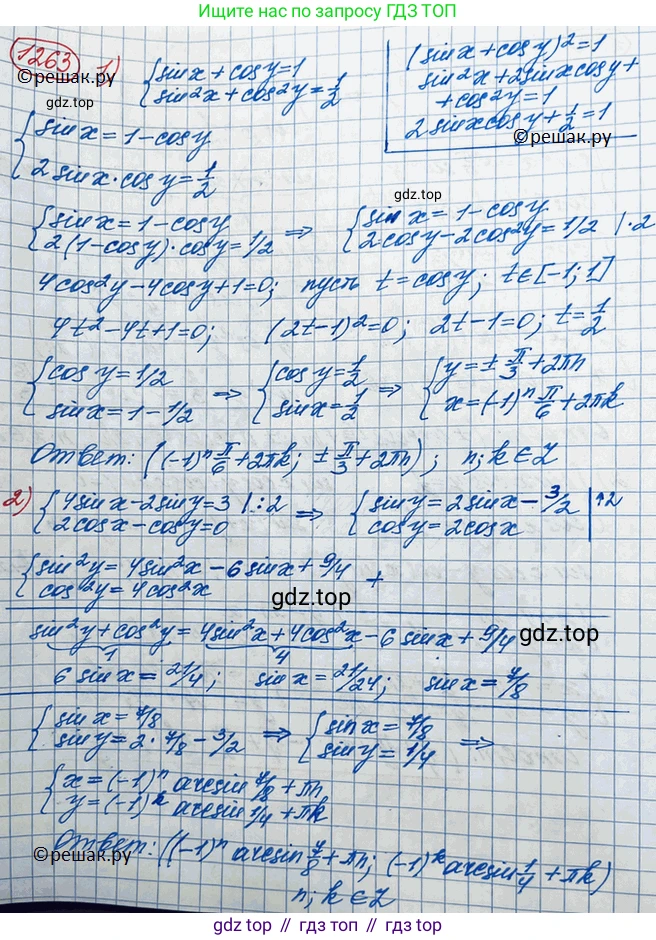 Ищите ответы по запросу ГДЗ ТОП
1263 1) { sinx + cosy = 1
sin²x + cos²y = 1/2
(sinx + cosy)² = 1
sin²x + 2sinxcosy +
+ cos²y = 1
2sinxcosy + 1/2 = 1
©решак.ру
gdz.top
©решак.ру
{ sinx = 1 - cosy
2sinx·cosy = 1/2
gdz.top
{ sinx = 1 - cosy
2(1 - cosy)·cosy = 1/2 ⇒ { sinx = 1 - cosy
2cosy - 2cos²y = 1/2 |·2
4cos²y - 4cosy + 1 = 0; пусть t = cosy; t∈[-1; 1]
4t² - 4t + 1 = 0; (2t - 1)² = 0; 2t - 1 = 0; t = 1/2
{ cosy = 1/2
sinx = 1 - 1/2 ⇒ { cosy = 1/2
sinx = 1/2 ⇒ { y = ± π/3 + 2πn
x = (-1)ⁿ π/6 + 2πk
Ответ: ((-1)ⁿ π/6 + 2πk; ± π/3 + 2πn); n; k ∈ Z
2) { 4sinx - 2siny = 3 |:2
2cosx - cosy = 0 ⇒ { siny = 2sinx - 3/2
cosy = 2cosx |↑2
{ sin²y = 4sin²x - 6sinx + 9/4
cos²y = 4cos²x +
gdz.top
sin²y + cos²y = 4sin²x + 4cos²x - 6sinx + 9/4
gdz.top
1 4
6sinx = 21/4; sinx = 21/24; sinx = 7/8
{ sinx = 7/8
siny = 2·7/8 - 3/2 ⇒ { sinx = 7/8
siny = 1/4 ⇒
{ x = (-1)ⁿ arcsin 7/8 + πn
y = (-1)ᵏ arcsin 1/4 + πk
Ответ: ((-1)ⁿ arcsin 7/8 + πn; (-1)ᵏ arcsin 1/4 + πk)
©решак.ру
n; k ∈ Z
gdz.top // гдз.топ // gdz.top // гдз.топ